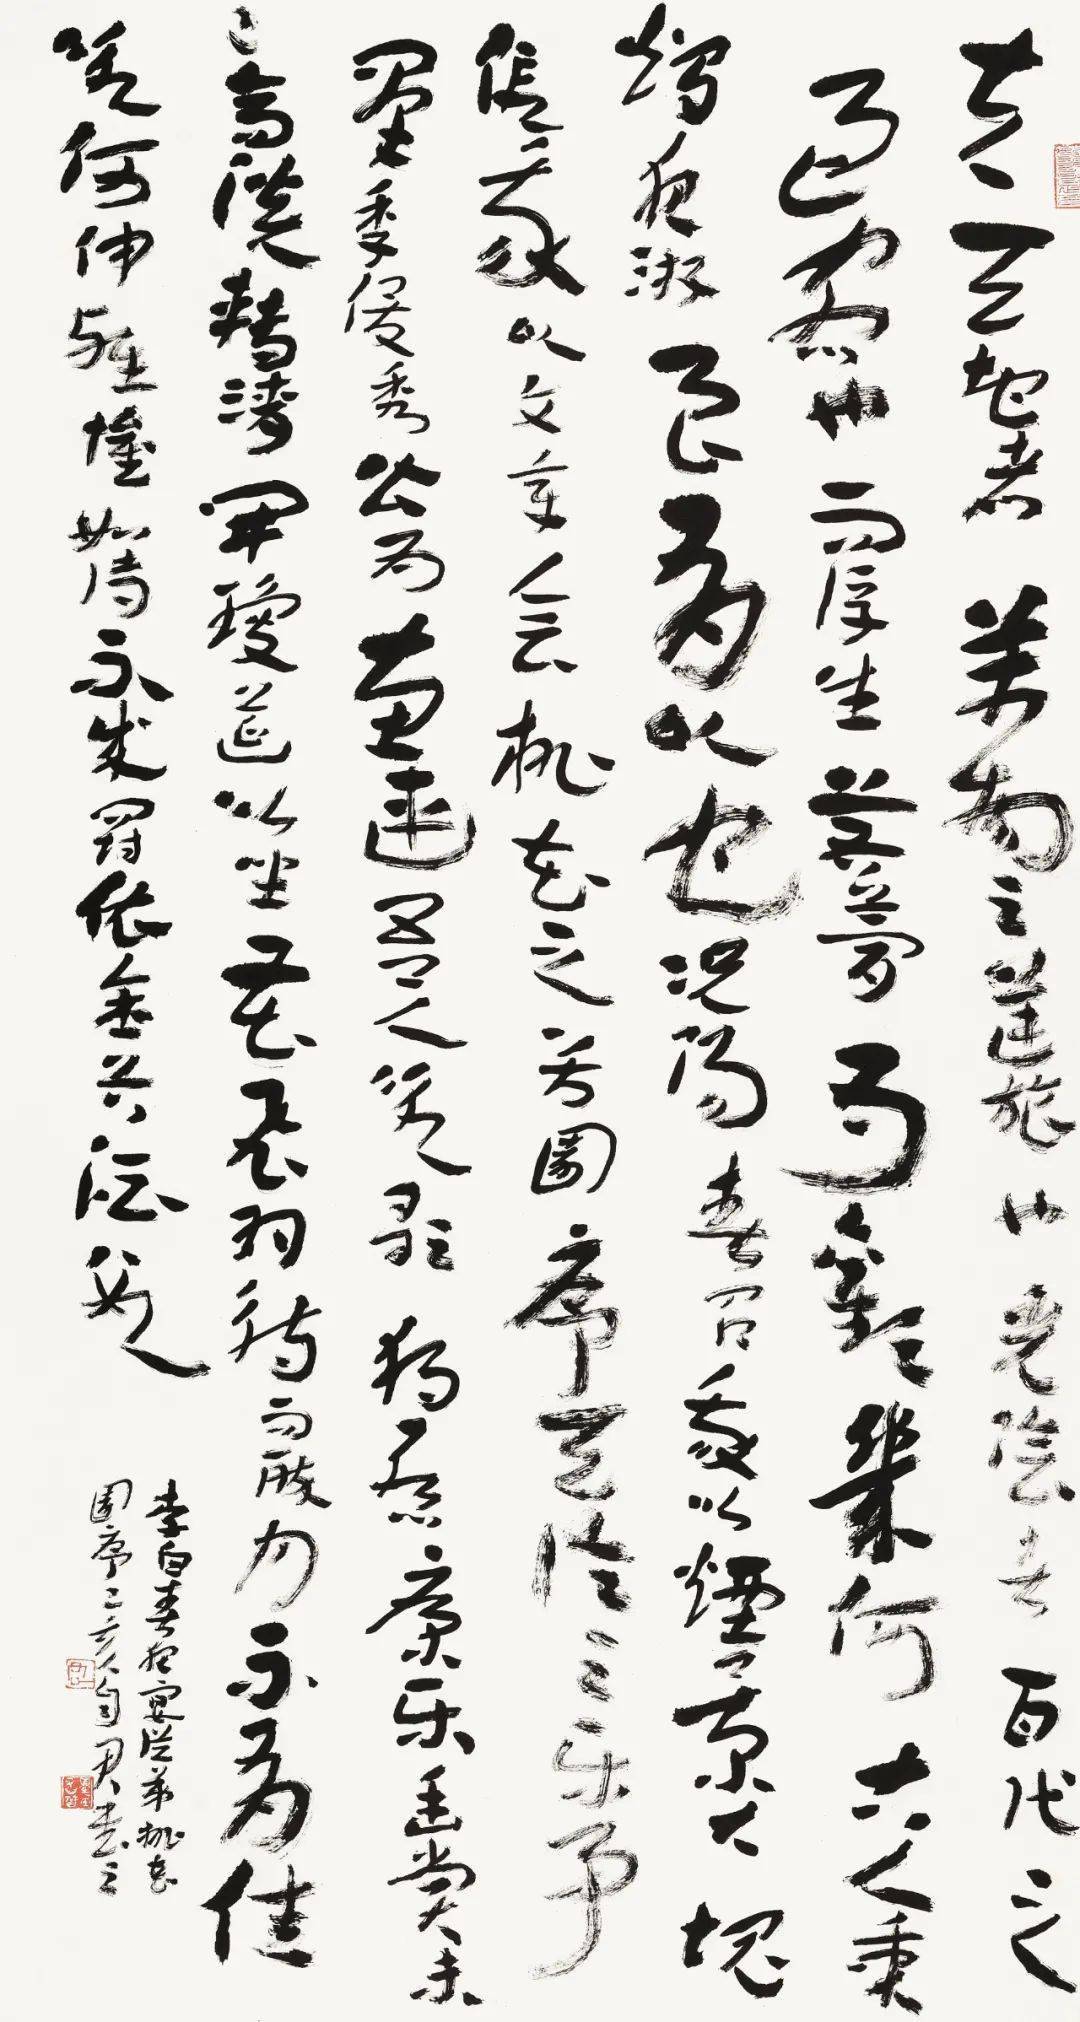 夫天地者萬物之逆旅也光陰者百代之
過客也而浮生若夢為歡幾何古人秉
燭夜游良有以也况陽春召我以煙景大塊
假我以文章會桃花之芳園序天倫之樂事
羣季俊秀皆為惠連吾人詠歌獨慙康樂幽賞未
已高談轉清開瓊筵以坐花飛羽觴而醉月不有佳
作何伸雅懷如詩不成罰依金谷酒數
李白春夜宴從弟桃花
園序己亥書之